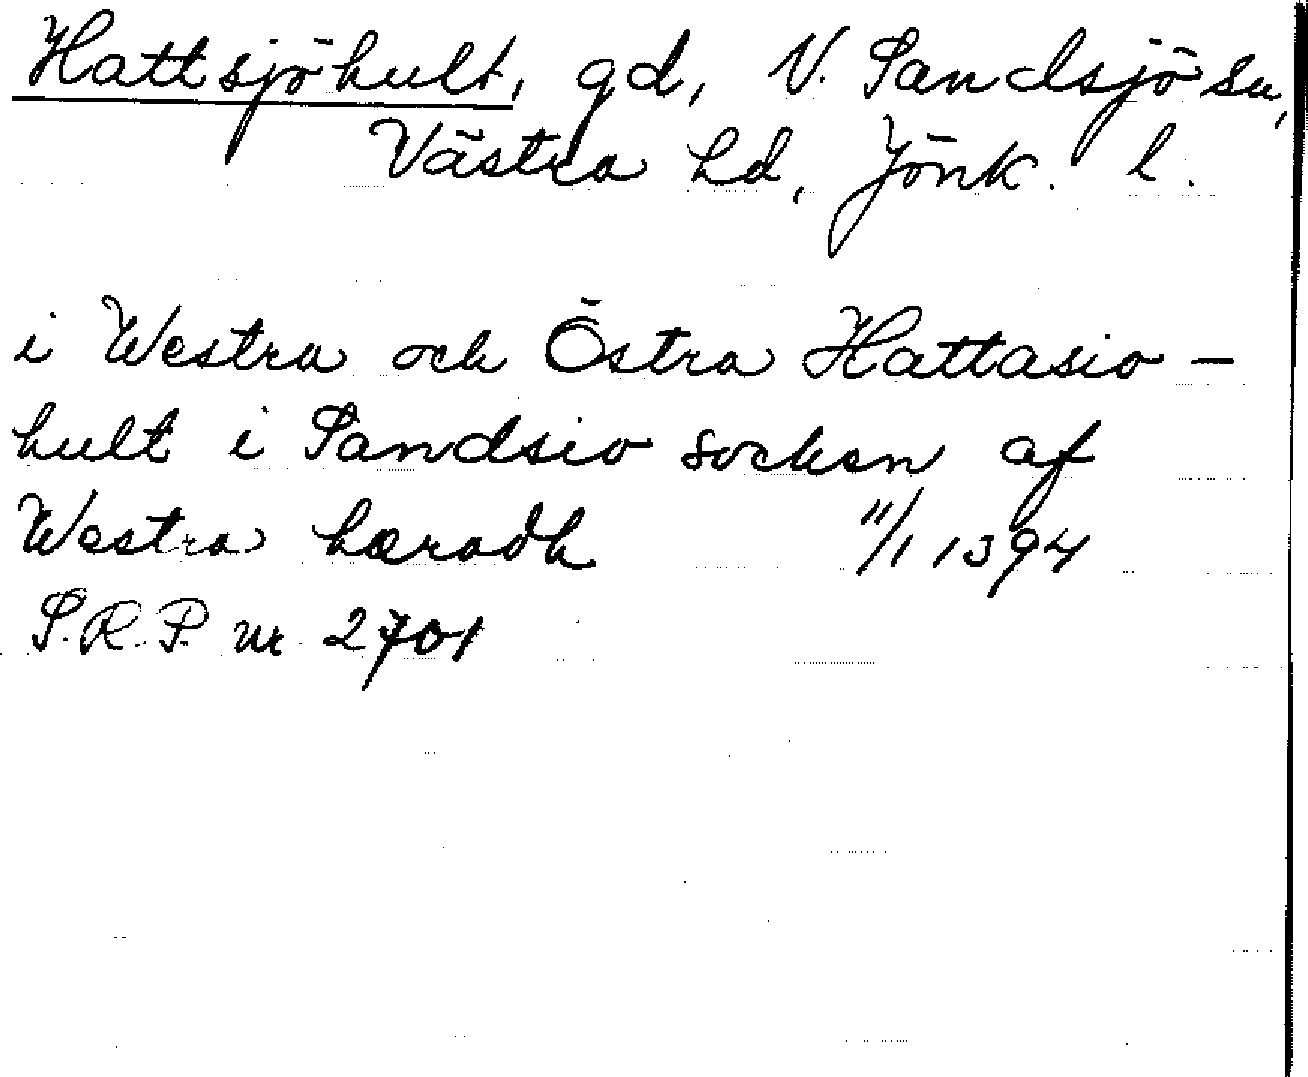 Hattsjöhult, gd, V. Sandsjö sn,
Västra hd, Jönk. l.
i Westra och Östra Hattasio-
hult i Sandsio socken af
Westra hæradh 11/1 1394
S.R.P. nr 2701